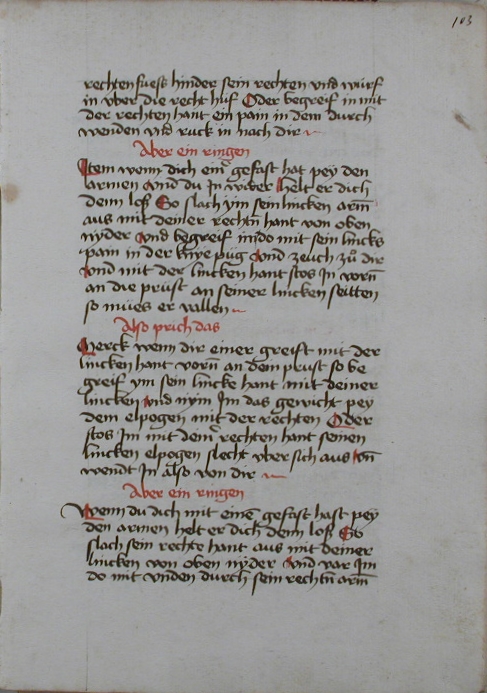 103
rechten fuess hinder sein rechten vnd würf
in vber die recht hüf Oder begreif in mit
der rechten hant ein pain in dem durch
wenden vnd ruck in nach dir
Aber ein ringen
Item wenn dich einer gefast hat pey den
armen vnd du In wider helt er dich
denn loß So slach ym sein lincken arm̄
aus mit deiner rechtn̄ hant von oben
nyder vnd begreif in do mit sein lincks
pain in der knye püg vnd zeuch zů dir
vnd mit der lincken hant stos In vorn̄
an die prust an seiner lincken seitten
so mües er vallen
Also prich das
Merck wenn dir einer greift mit der
lincken hant vorn̄ an dem prust so be
greif ym sein lincke hant mit deiner
lincken vnd nym Im das gewicht pey
dem elpogen mit der rechten Oder
stos Im mit dein̄ rechten hant seinen
lincken elpogen slecht vber sich aus vn̄
wendt In also von dir
Aber ein ringen
Wenn du dich mit einē gefast hast pey
den armen helt er dich denn loß So
slach sein rechte hant aus mit deiner
lincken von oben nyder vnd var Im
do mit vnden durch sein rechtn̄ arm̄